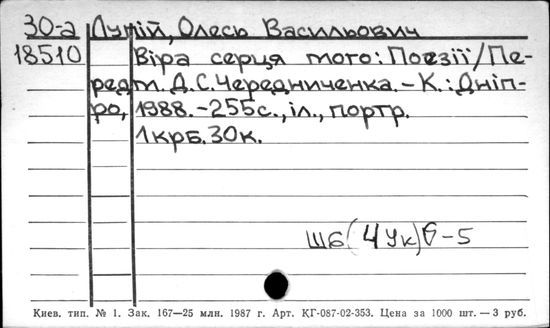 30-а Лупій, Олесь Васильович
18510 Віра серця мого: Поезії/Пе-
редм. Д.С.Чередниченка. – К.: Дніп-
ро, 1988. – 255с., іл., портр.
1крб. 30к.
Ш6(4Ук)6-5
Киев. тип. № 1. Зак. 167—25 млн. 1987 г. Арт. КГ-087-02-353. Цена за 1000 шт. — 3 руб.